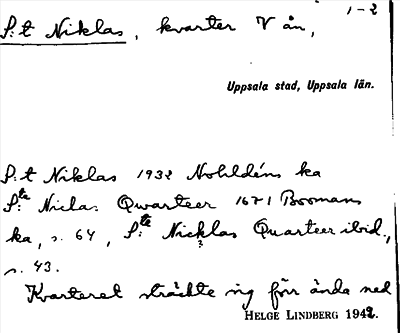 1-2
S:t Niklas, kvarter V ån,
Uppsala stad, Uppsala län.
S:t Niklas 1932 Nohldéns ka
S:te Niclas Qwarteer 1671 Boomans
ka, s. 64, S:te Nicklas Quarteer ibid.,
s. 43.
Kvarteret sträckte sig förr ända ned
HELGE LINDBERG 1942.